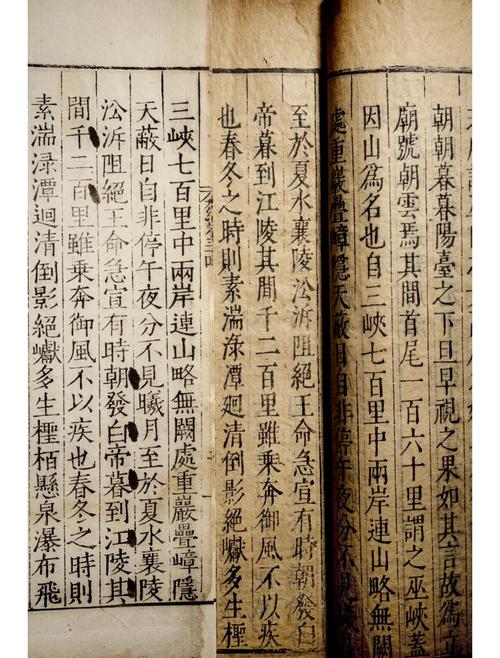 朝朝暮暮陽臺之下旦早視之果如其言故為立
廟號朝雲焉其間首尾一百六十里謂之巫峽蓋
因山為名也自三峽七百里中兩岸連山略無闕
處重巖疊嶂隱天蔽日自非停午夜分不見曦月
至於夏水襄陵㳂泝阻絕王命急宣有時朝發白
帝暮到江陵其間千二百里雖乘奔御風不以疾
也春冬之時則素湍淥潭迴清倒影絕巘多生檉
三峽七百里中兩岸連山略無闕處重巖疊嶂隱
天蔽日自非停午夜分不見曦月至於夏水襄陵
㳂泝阻絕王命急宣有時朝發白帝暮到江陵其
間千二百里雖乘奔御風不以疾也春冬之時則
素湍淥潭迴清倒影絕巘多生檉栢懸泉瀑布飛